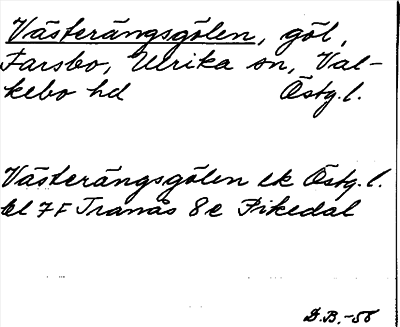 Västerängsgölen, göl,
Farsbo, Ulrika sn, Val-
kebo hd Östg.l.
Västerängsgölen ek Östg.l.
bl 7F Tranås 8e Fikedal
D.B.-58